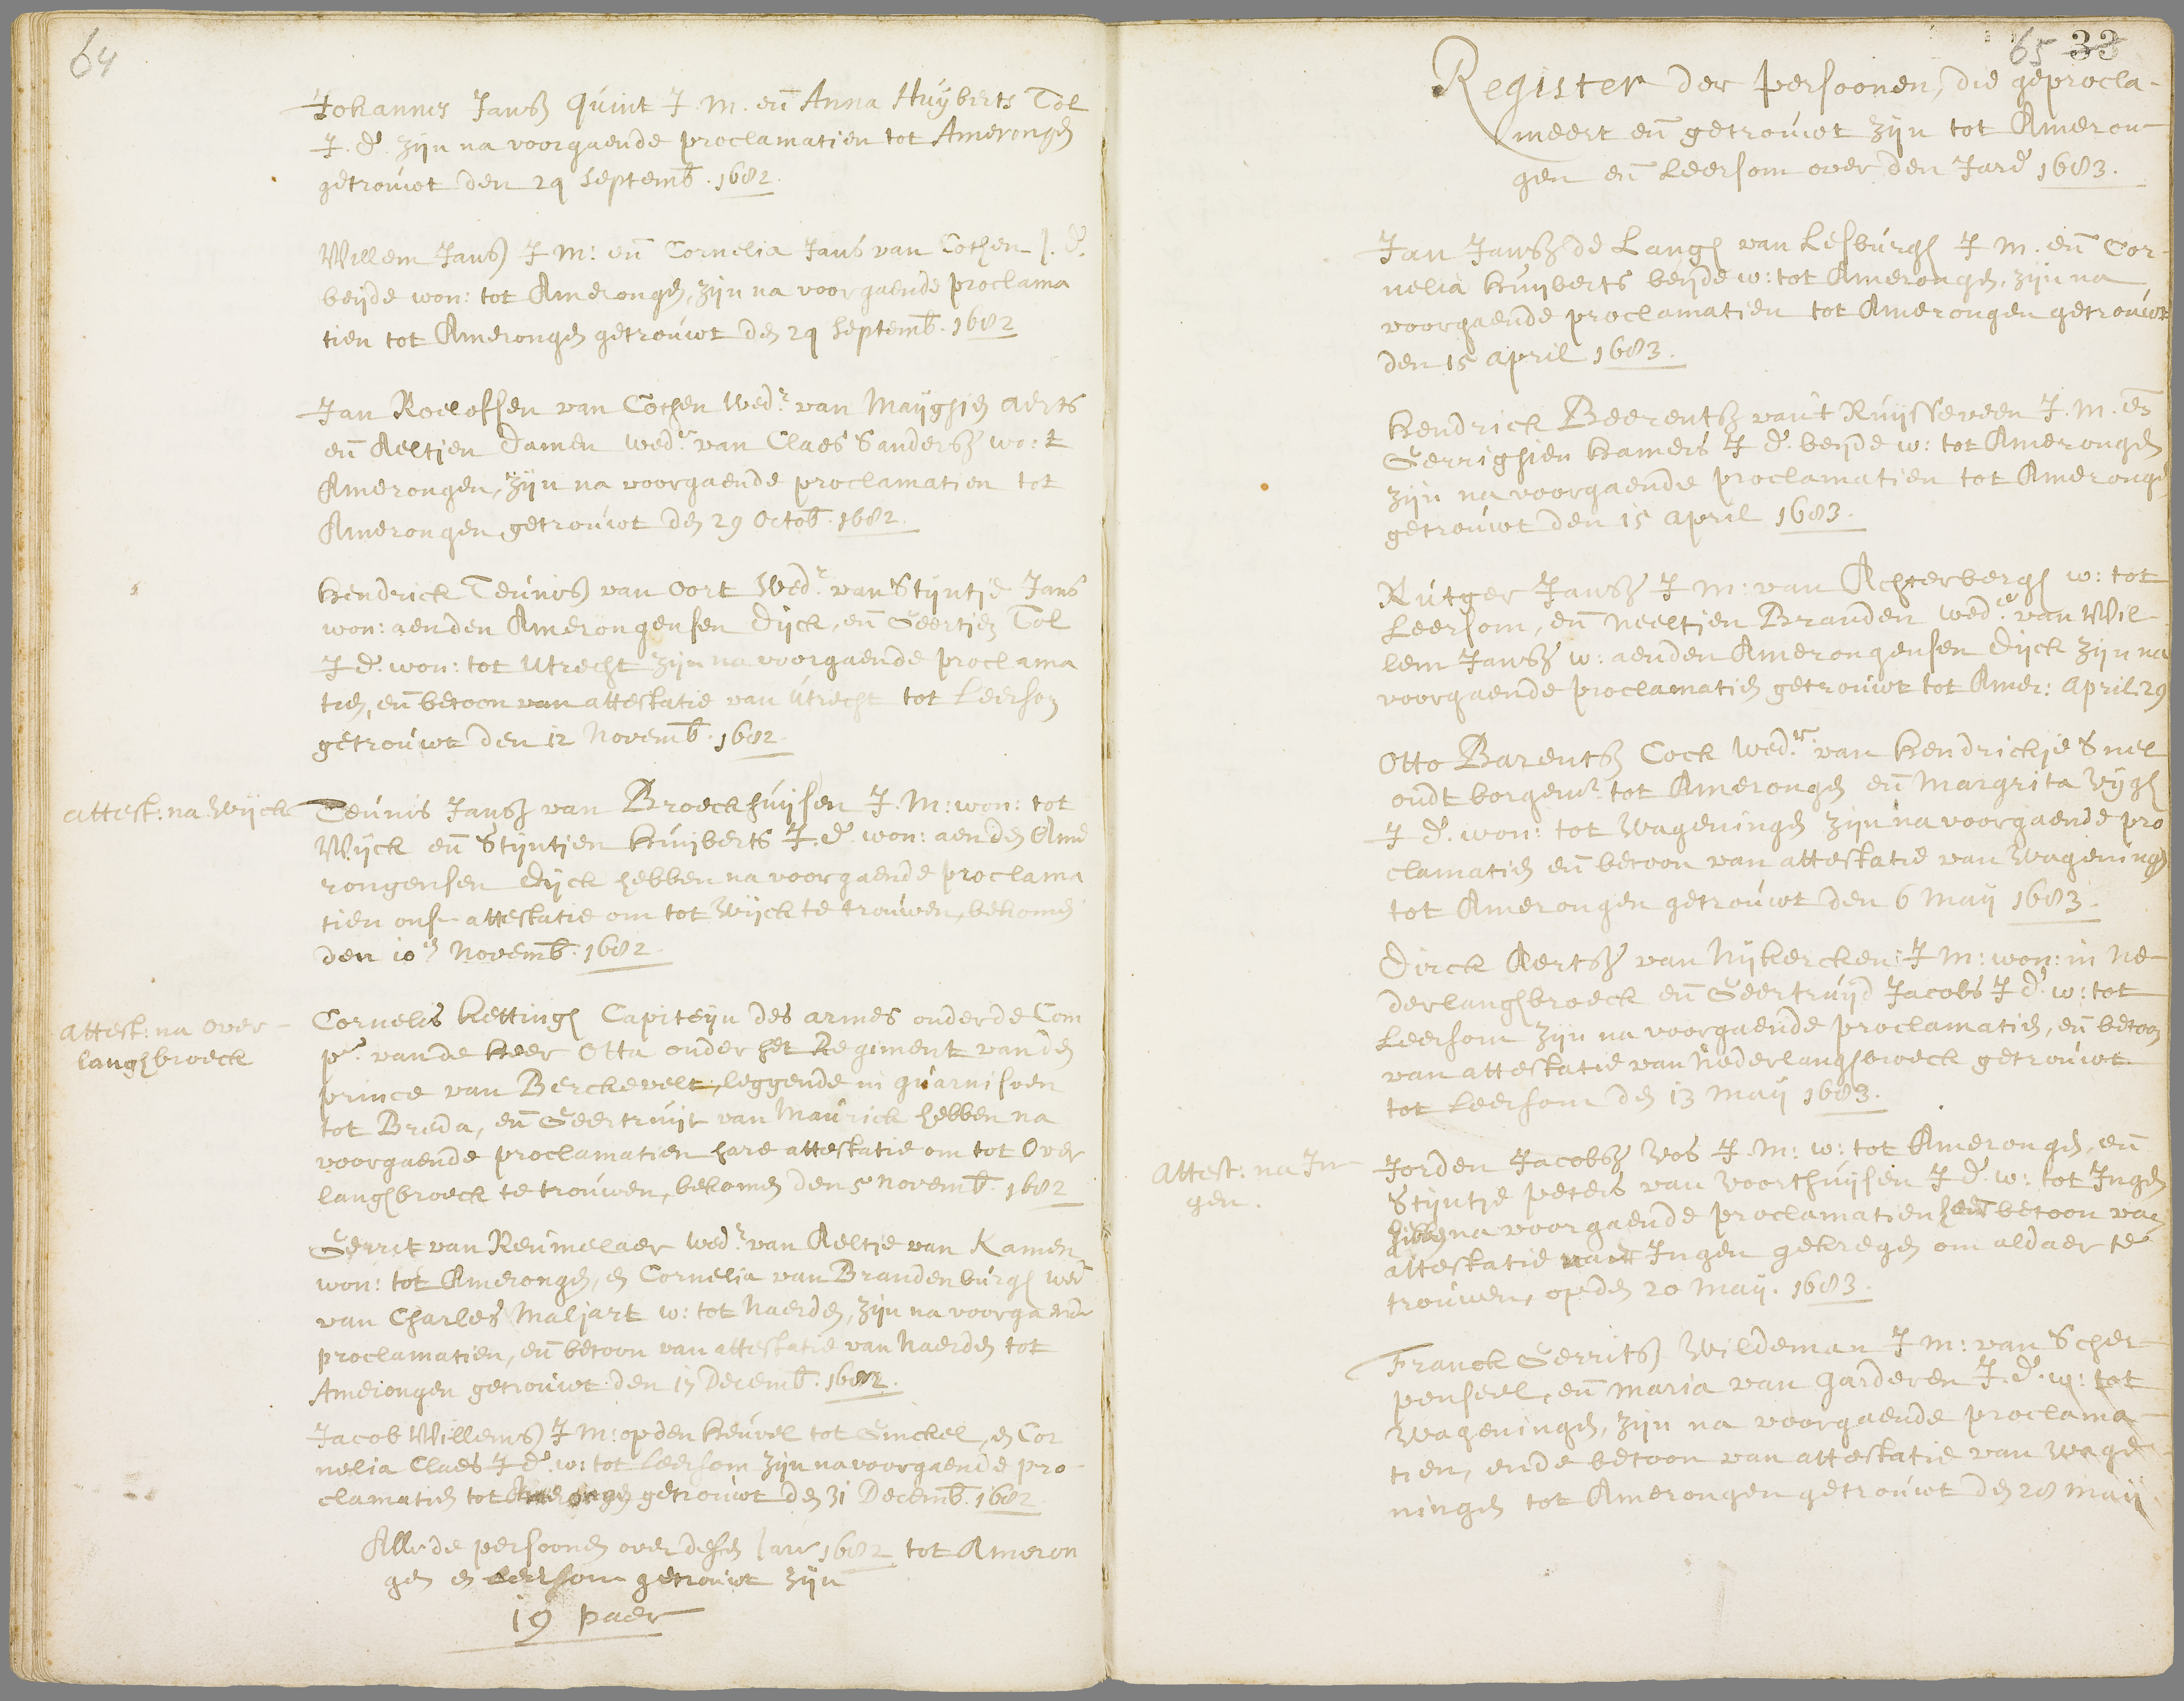 64
Johannes Jansz Quint J. M. en Anna Huijberts Tol
J. d. zijn na voorgaende proclamatien tot Amerongen
getrouwt den 24 Septemb. 1682.
Willem Jansz J M: en Cornelia Jans van Cothen J. d.
beijde won: tot Amerongen, zijn na voorgaende proclama
tien tot Amerongen getrouwt den 24 Septemb. 1682
Jan Roelofsen van Cothen wedr van Maijghien Aerts
en Aeltjen Damen wede van Claes Sandersz wo: t
Amerongen, zijn na voorgaende proclamatien tot
Amerongen getrouwt den 29 Octob. 1682.
Hendrick Teunisz van Oort Wedr van Stijntje Jans
won: aenden Amerongensen Dijck, en Geertjen Tol
J d. won: tot Utrecht zijn na voorgaende proclama
tien, en betoon van attestatie van Utrecht tot Leersom
getrouwt den 12 Novemb. 1682.
attest: na Wijck
Teunis Jansz van Broeckhuijsen J. M: won: tot
Wijck en Stijntjen Huijberts J. d. won: aenden Ame
rongensen Dijck hebben na voorgaende proclama
tien onse attestatie om tot Wijck te trouwen, bekomen
den 10en Novemb. 1682
attest: na Over
langhbroeck
Cornelis Kettingh Capiteijn des armes onder de Com
pe. vande Heer Otta onder het Regiment vanden
prince van Berckevelt, leggende in guarnisoen
tot Breda, en Geertruijt van Maurick hebben na
voorgaende proclamatien hare attestatie om tot Over
langhbroeck te trouwen, bekomen den 5 Novemb. 1682
Gerrit van Reumelaer wedr van Aeltje van Kamen
won: tot Amerongen, en Cornelia van Brandenburgh wed
van Charles Maljart w: tot Naerden, zijn na voorgaende
proclamatien, en betoon van attestatie van Naerden tot
Amerongen getrouwt den 17 Decemb. 1682.
Jacob Willemsz J M: opden Heuvel tot Ginckel, en Cor
nelia Claes J d. w: tot Leersom zijn na voorgaende pro-
clamatien tot Amerongen getrouwt den 31 Decemb. 1682
Alle de persoonen over desen Jare 1682 tot Ameron
gen en Leersom getrouwt zijn
19 paer
65 33
Register der persoonen, die geprocla-
meert en getrouwt zijn tot Ameron-
gen en Leersom over den Jare 1683.
Jan Jansz de Langh van Lesburgh J M. en Cor-
nelia Huijberts beijde w: tot Amerongen, zijn na
voorgaende proclamatien tot Amerongen getrouwt
den 15 april 1683.
Hendrick Beerentsz van't Ruijsseveen J. M. en
Gerrighien Hamers J d. beijde w: tot Amerongen
zijn na voorgaende proclamatien tot Amerongen
getrouwt den 15 april 1683.
Rutger Jansz J M: van Achterbergh w: tot
Leersom, en Neeltjen Branden wede van Wil-
lem Jansz w: aenden Amerongensen Dijck zijn na
voorgaende proclamatien getrouwt tot Amer: april 29
Otto Barentsz Cock wedr van Hendrickje Snel
oudt borgemr tot Amerongen en Margrita Wijgh
J d. won: tot Wageningen zijn na voorgaende pro
clamatien en betoon van attestatie van Wageningen
tot Amerongen getrouwt den 6 Maij 1683.
Dirck Aertsz van Nijkercken J M: won: in Ne-
derlanghbroeck en Geertruijd Jacobs J d. w: tot
Leersom zijn na voorgaende proclamatien, en betoon
van attestatie van Nederlanghbroeck getrouwt
tot Leersom den 13 Maij 1683.
Attest: na In-
gen.
Jorden Jacobsz Vos J. M: w: tot Amerongen, en
Stijntje Peters van Voorthuijsen J d. w: tot Ingen
hebben na voorgaende proclamatien en betoon van
attestatie van Ingen gekregen om aldaer te
trouwen, opden 20 Maij. 1683.
Franck Gerritsz Wildeman J M: van Scher-
penseel, en Maria van Garderen J. d. w: tot
Wageningen, zijn na voorgaende proclama-
tien, ende betoon van attestatie van Wage-
ningen tot Amerongen getrouwt den 28 Maij